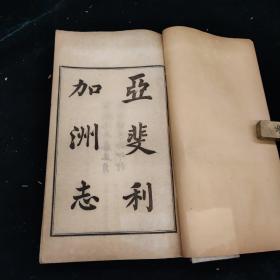 亞斐利
加洲志